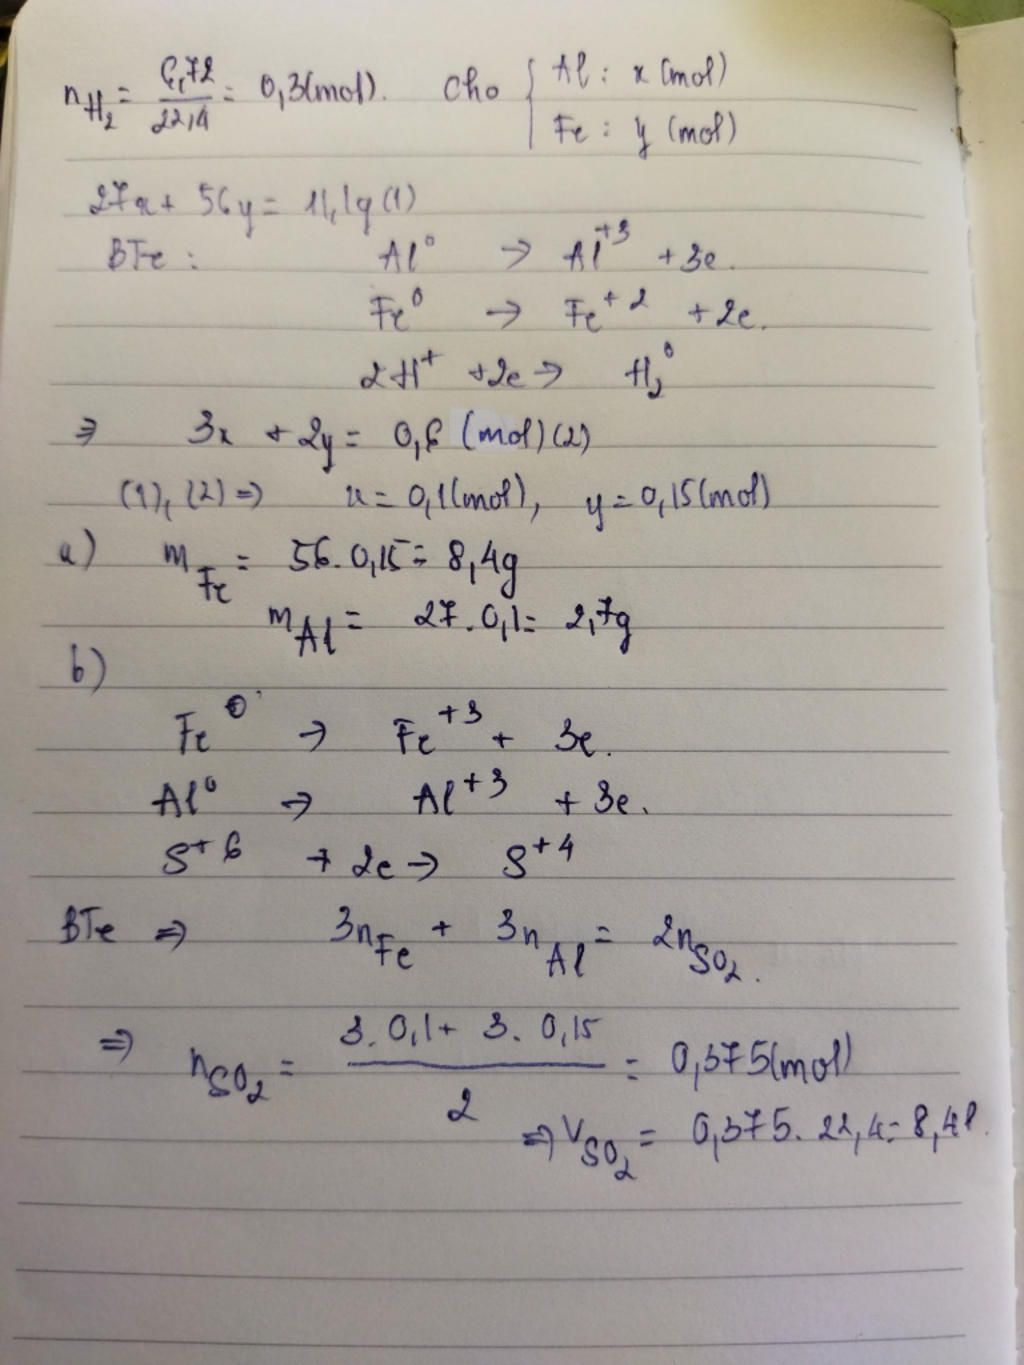 nH₂ = 6,72/22,4 = 0,3(mol). Cho { Al : x (mol)
Fe : y (mol)
27x + 56y = 11,1g (1)
BTe : Al⁰ → Al⁺³ + 3e.
Fe⁰ → Fe⁺² + 2e.
2H⁺ + 2e → H₂⁰
⇒ 3x + 2y = 0,6 (mol) (2)
(1), (2) ⇒ x = 0,1(mol), y = 0,15(mol)
a) mFe = 56. 0,15 = 8,4g
mAl = 27. 0,1 = 2,7g
b)
Fe⁰ → Fe⁺³ + 3e.
Al⁰ → Al⁺³ + 3e.
S⁺⁶ + 2e → S⁺⁴
BTe ⇒ 3nFe + 3nAl = 2nSO₂.
⇒ nSO₂ = (3. 0,1 + 3. 0,15)/2 = 0,375(mol)
⇒ VSO₂ = 0,375. 22,4 = 8,4l.